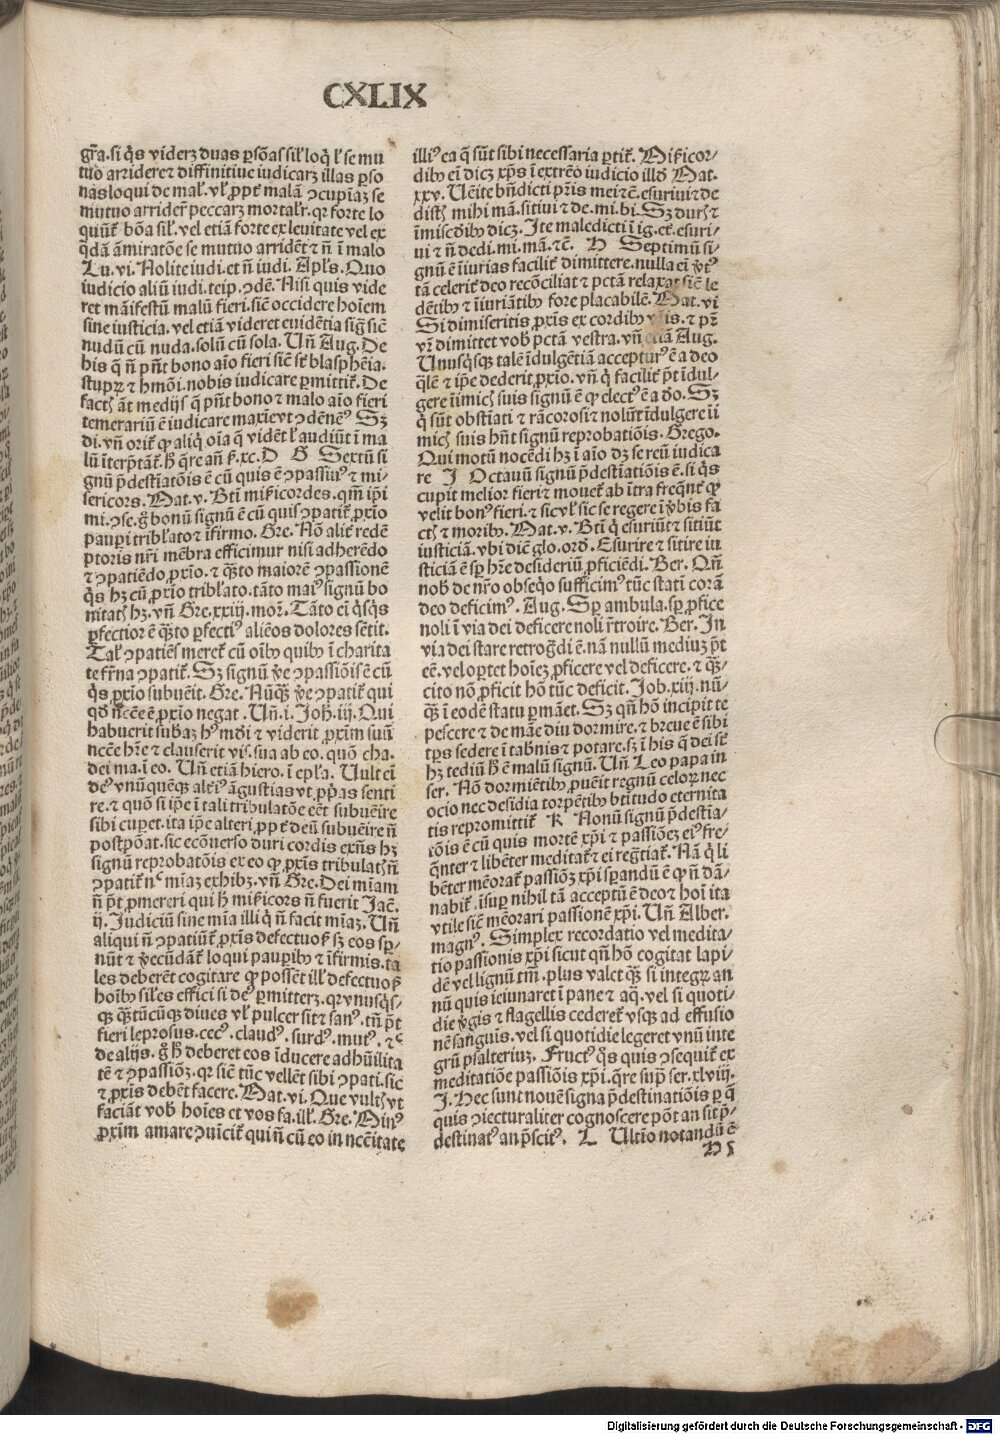 CXLIX
gr̄a.si q̇s viderꝫ duas ꝑsōas sil̄ loq̇ l̄ se mu
tuo arriderēt diffinitiue iudicarꝫ illas ꝑso
nas loqui de mal̄. vl̄ ꝓpt̄ malā ↄcupiaꝫ se
mutuo arridēt̄ peccarꝫ mortal̄r. qꝛ forte lo
quūt̄ bōa sil̄. vel etiā forte ex leuitate vel ex
q̇dā āmiratōe se mutuo arridēt ⁊ nō ī malo
Lu.vi. Nolite iudi.et nō iudi. Apl̄s. Quo
iudicio aliū iudi.teip.ↄdē. Nisi quis vide
ret māifestū malū fieri.sic̄ occidere hoīem
sine iusticia.vel etiā videret euidētia siḡ sic̄
nudū cū nuda.solū cū sola. Un̄ Aug. De
his q̄ nō pn̄t bono aīo fieri sic̄ st̄ blasphēia.
stupꝝ ⁊ hmōi.nobis iudicare ꝑmittit̄. De
factꝭ āt medijs q̄ pn̄t bono ⁊ malo aīo fieri
temerariū ē iudicare maxīe vt ↄdēnēꝰ Sꝫ
di.vn̄ orit̄ ꝙ aliq̇ oīa q̄ vidēt l̄ audiūt ī ma
lū īterp̄tāt̄.h̄ q̄re añ ẜ.xc.D G Sextū si
gnū p̄destīatōis ē cū quis ē ↄpassiuꝰ ⁊ mi/
sericors. Mat.v. Bt̄i mīs̄icordes.qm̄ ip̄i
mi.ↄse.g̊ bonū signū ē cū quis ↄpatit̄ ꝓxīo
pauꝑi tribl̄ato ⁊ īfirmo. Gre. Nō alit̄ redē
ptoris nr̄i mēbra efficimur nisi adherēdo
⁊ ↄpatiēdo ꝓxīo.⁊ q̄ꝫto maiorē ↄpassionē
q̇s hꝫ cū ꝓxīo tribl̄ato.tāto maiꝰ signū bo
nitatꝭ hꝫ.vn̄ Gre.xxiij.moꝝ. Tāto ei q̇sq̇s
ꝑfectior ē q̄ꝫto ꝑfectiꝰ aliēos dolores sētit.
Tal̄ ↄpatiēs meret̄ cū oībꝰ quibꝰ ī charita
te fr̄na ↄpatit̄. Sꝫ signū ve̊ ↄpassiōis ē cū
q̇s ꝓxīo subuēit. Gre. Nūq̄ꝫ ve̊ ↄpatit̄ qui
qd̄ nēcē ē ꝓxīo negat. Un̄.i. Joh̄.iij. Qui
habuerit sub̄aꝫ hꝰ mūdi ⁊ viderit ꝓxīm suū
nēcē hr̄e ⁊ clauserit vis.sua ab eo.quō cha.
dei ma.ī eo. Un̄ etiā hiero.ī epl̄a. Uult ei
deꝰ vnūquēqꝫ alt̄iꝰ āgustias vt ꝓp̄as senti
re.⁊ quō si ip̄e ī tali tribulatōe eēt subuēire
sibi cuꝑet.ita ip̄e alteri,ꝓpt̄ deū subuēire nō
postpōat.sic ecōuerso duri cordis exn̄s hꝫ
signū reprobatōis ex eo ꝙ ꝓxīs tribulatꝭ nō
ↄpatit̄ n̄ꝰ mīaꝫ exhibꝫ.vn̄ Gre. Dei mīam
nō pt̄ ꝓmereri qui h̄ mīs̄icors nō fuerit Jac̄.
ij. Judiciū sine mīa illi q̇ nō facit mīaꝫ. Un̄
aliqui nō ↄpatiūt̄ ꝓxīs defectuoẜ sꝫ eos spꝛ/
nūt ⁊ v̄ecūdāt̄ loqui pauꝑibꝰ ⁊ īfirmis.ta
les deberēt cogitare ꝙ possēt ill̄ defectuoẜ
hoībꝰ sil̄es effici si deꝰ ꝑmitterꝫ.qꝛ vnusq̇s/
qꝫ q̄ꝫtūcūqꝫ diues vl̄ pulcer sit ⁊ sanꝰ.tn̄ pt̄
fieri leprosus.cecꝰ.claudꝰ.surdꝰ.mutꝰ.⁊ꝰ
de alijs.g̊ h̄ deberet eos īducere ad hūilita
tē ⁊ ↄpassiōꝫ.qꝛ sic̄ tūc vellēt sibi ↄpati.sic
⁊ ꝓxīs debēt facere. Mat.vi. Que vultꝭ vt
faciāt vob̄ hoīes et vos fa.ill̄. Gre. Minꝰ
ꝓxīm amare ↄuīcit̄ qui nō cū eo in ncc̄itate
illiꝰ ea q̄ sūt sibi necessaria ꝑtit̄. Mīs̄icor/
dibꝰ eī dicꝫ xp̄s ī extrēo iudicio illd̄ Mat.
xxv. Uēite bn̄dicti pr̄is mei ⁊c̄.esuriui ⁊ de
distꝭ mihi mā.sitiui ⁊ de.mi.bi. Sꝫ durꝭ ⁊
īmis̄dibꝰ dicꝫ. Jte maledicti ī ig.et̄.esuri/
ui ⁊ nō dedi.mi.mā.⁊c̄. H Septimū si/
gnū ē īiurias facilit̄ dimittere.nulla ei v̄tꝰ
tā celerit̄ deo recōciliat ⁊ pctā relaxat sic̄ le
dētibꝰ ⁊ īiuriātibꝰ fore placabilē. Mat.vi
Si dimiseritis ꝓxīs ex cordibꝰ vr̄is.⁊ pr̄
vr̄ dimittet vob̄ pctā vestra.vn̄ etiā Aug.
Unusq̇sqꝫ talē īdulgētiā accepturꝰ ē a deo
q̄lē ⁊ ip̄e dederit ꝓxīo.vn̄ q̇ facilit̄ pt̄ īdul/
gere īimicꝭ suis signū ē ꝙ electꝰ ē a do. Sꝫ
q̇ sūt obstīati ⁊ rācorosi ⁊ nolūt īdulgere īi
micꝭ suis hn̄t signū reprobatiōis. Grego.
Qui motū nocēdi hꝫ ī aīo dꝫ se reū iudica
re J Octauū signū p̄destīatiōis ē.si q̇s
cupit melior fieri ⁊ mouet̄ ab ītra freq̄nt̄ ꝙ
velit bonꝰ fieri.⁊ sic vl̄ sic se regere ī v̄bis fa
ctꝭ ⁊ moribꝰ. Mat.v. Bt̄i q̇ esuriūt ⁊ sitiūt
iusticiā.vbi diēt glo.ord̄. Esurire ⁊ sitire iu
sticiā ē sꝑ hr̄e desideriū ꝓficiēdi. Ber. Qn̄
nob̄ de nr̄o obseq̇o sufficimꝰ tūc stati corā
deo deficimꝰ. Aug. Sꝑ ambula.sꝑ ꝓfice
noli ī via dei deficere noli r̄troire. Ber. In
via dei stare retrog̊di ē.nā nullū mediuꝫ pt̄
eē.vel oꝑtet hoīeꝫ ꝓficere vel deficere.⁊ q̄ꝫ/
cito nō ꝓficit hō tūc deficit. Job.xiij.nū/
q̄ꝫ ī eodē statu ꝑmāet. Sꝫ qn̄ hō incipit te
pescere ⁊ de māe diu dormire.⁊ breue ē sibi
tp̄s sedere ī tabn̄is ⁊ potare.sꝫ ī his q̄ dei st̄
hꝫ tediū h̄ ē malū signū. Un̄ Leo papa in
ser. Nō dormiētibꝰ ꝓuēit regnū celoꝝ nec
ocio nec desidia torpētibꝰ bt̄itudo eternita
tis repromittit̄ K Nonū signū p̄destīa/
tiōis ē cū quis mortē xp̄i ⁊ passiōeꝫ eiꝰ fre/
q̄nter ⁊ libēter meditat̄ ⁊ ei reg̊tiat̄. Nā q̇ li
bēter mēorat̄ passiōꝫ xp̄i sꝑandū ē ꝙ nō dā/
nabit̄.īsuꝑ nihil tā acceptū ē deo ⁊ hoī ita
vtile sic̄ mēorari passionē xp̄i. Un̄ Alber.
magnꝰ. Simplex recordatio vel medita/
tio passionis xp̄i sicut qn̄ hō cogitat lapi/
dē vel lignū tm̄.plus valet q̄ꝫ si integꝝ an
nū quis ieiunaret ī pane ⁊ aq̄.vel si quoti/
die v̄gis ⁊ flagellis cederet̄ vsqꝫ ad effusio
nē sanguīs.vel si quotidie legeret vnū inte
grū psalteriuꝫ. Fructꝰ q̇s quis ↄsequit̄ ex
meditatiōe passiōis xp̄i.q̄re sup̄ ser.xlviij.
J. Hec sunt nouē signa p̄destinatiōis ꝑ q̄
quis ↄiecturaliter cognoscere pōt an sit p̄/
destinatꝰ an p̄scitꝰ. L Ultīo notandū ē